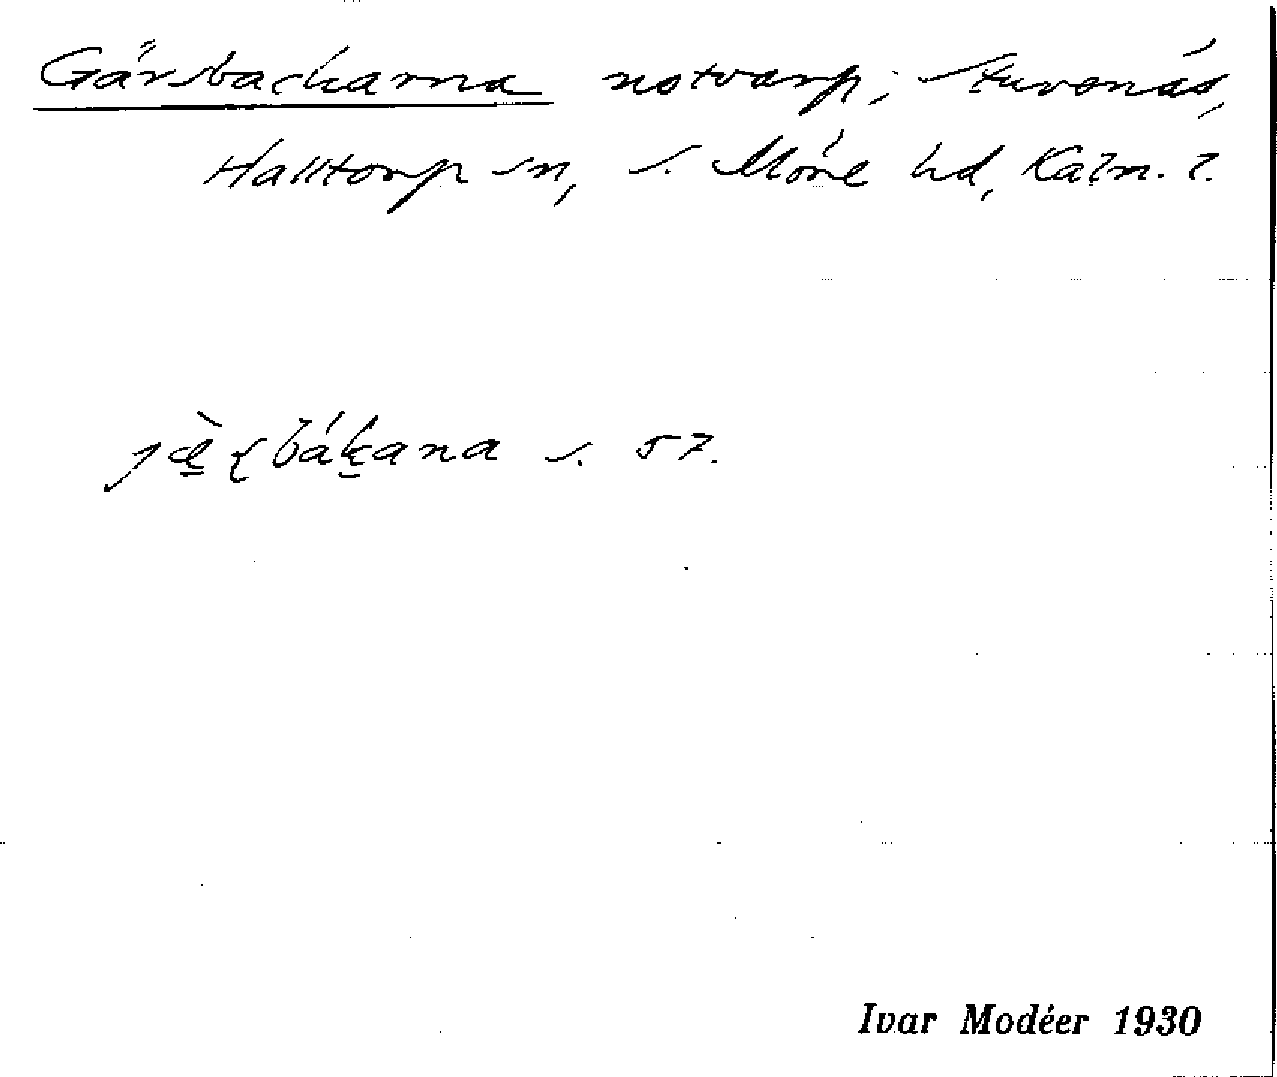 Gärsbackarna notvarp; Stuvenäs,
Halltorp sn, s. Möre hd, Kalm. l.
s. 57.
Ivar Modéer 1930